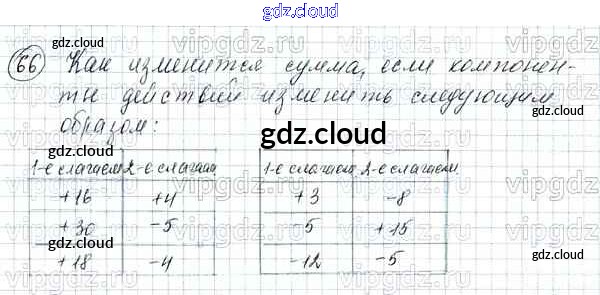 gdz.cloud
66 Как изменится сумма, если компонен-
gdz.cloud
ты действий изменить следующим
образом:
gdz.cloud
1-е слагаем 2-е слагаем
+16 +4
+30 -5
+18 -4
1-е слагаем 2-е слагаем
+3 -8
5 +15
-12 -5
gdz.cloud
gdz.cloud
gdz.cloud